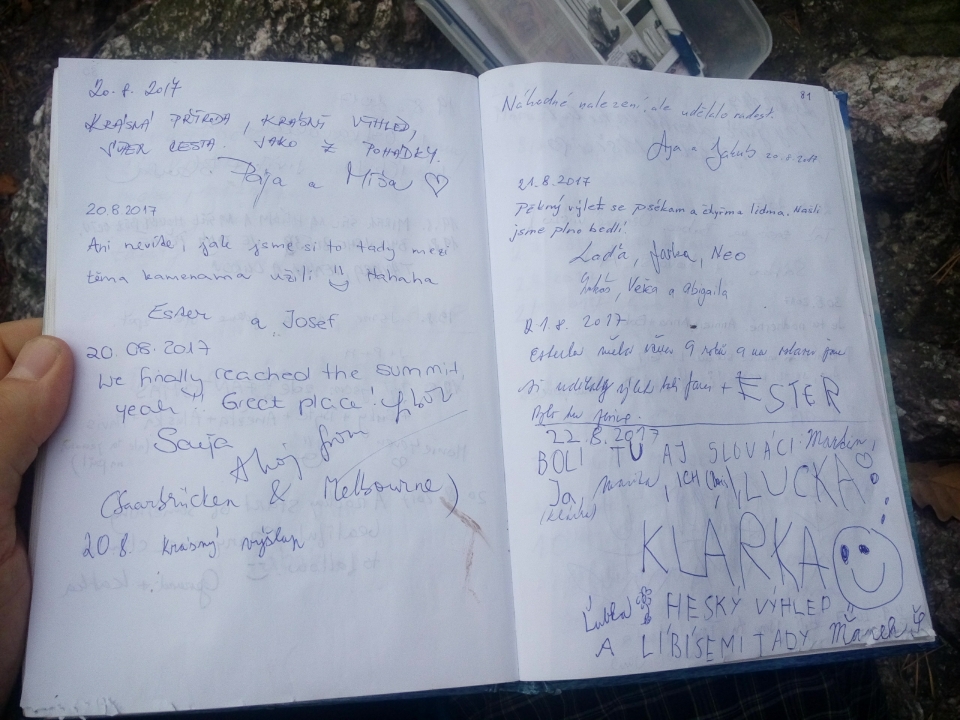 20.8.2017
KRÁSNÁ PŘÍRODA, KRÁSNÝ VÝHLED,
SUPER CESTA. JAKO Z POHÁDKY.
Pája a Míša
20.8.2017
Ani nevíte, jak jsme si to tady mezi
těma kamenama užili Hahaha
Ester a Josef
20.08.2017
We finally reached the summit,
yeah!! Great place!
Sonja
Ahoj from
(Saarbrücken & Melbourne)
20.8. krásný výšlap
81
Náhodné nalezení, ale udělalo radost.
Aja a Jakub 20.8.2017
21.8.2017
Pěkný výlet se psékam a čtyřma lidma. Našli
jsme plno bedlí!
Laďa, Jarka, Neo
Lukáš, Věka a Abigaila
21.8.2017
9 roků a na
si udělaly výlet + ESTER
Bylo
22.8.2017
BOLI TU AJ SLOVÁCI: Martin,
Ja, ICH LUCKA
KLARKA
Ľubka HESKÝ VÝHLED
A LÍBÍSEMI TADY Mařenek